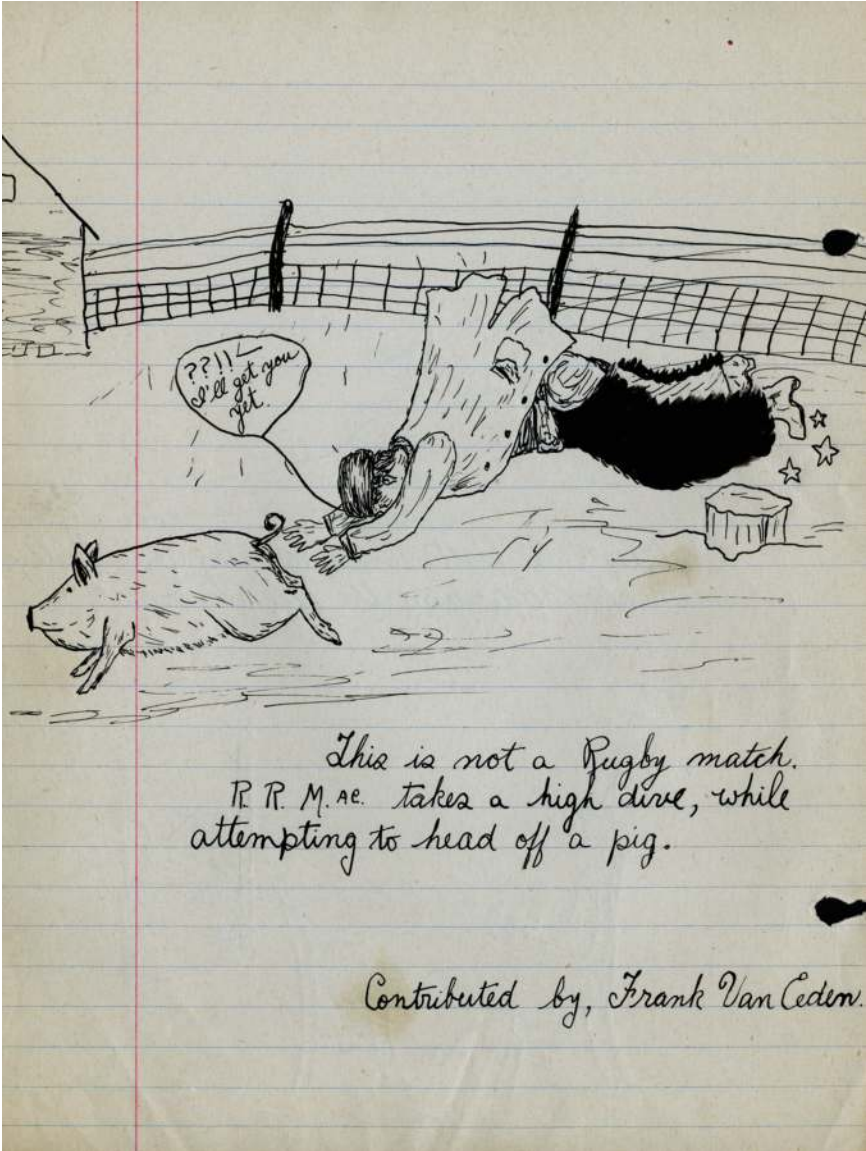 ??!!
I'll get you
yet.
This is not a Rugby match.
R. R. M. ac. takes a high dive, while
attempting to head off a pig.
Contributed by, Frank Van Eeden.